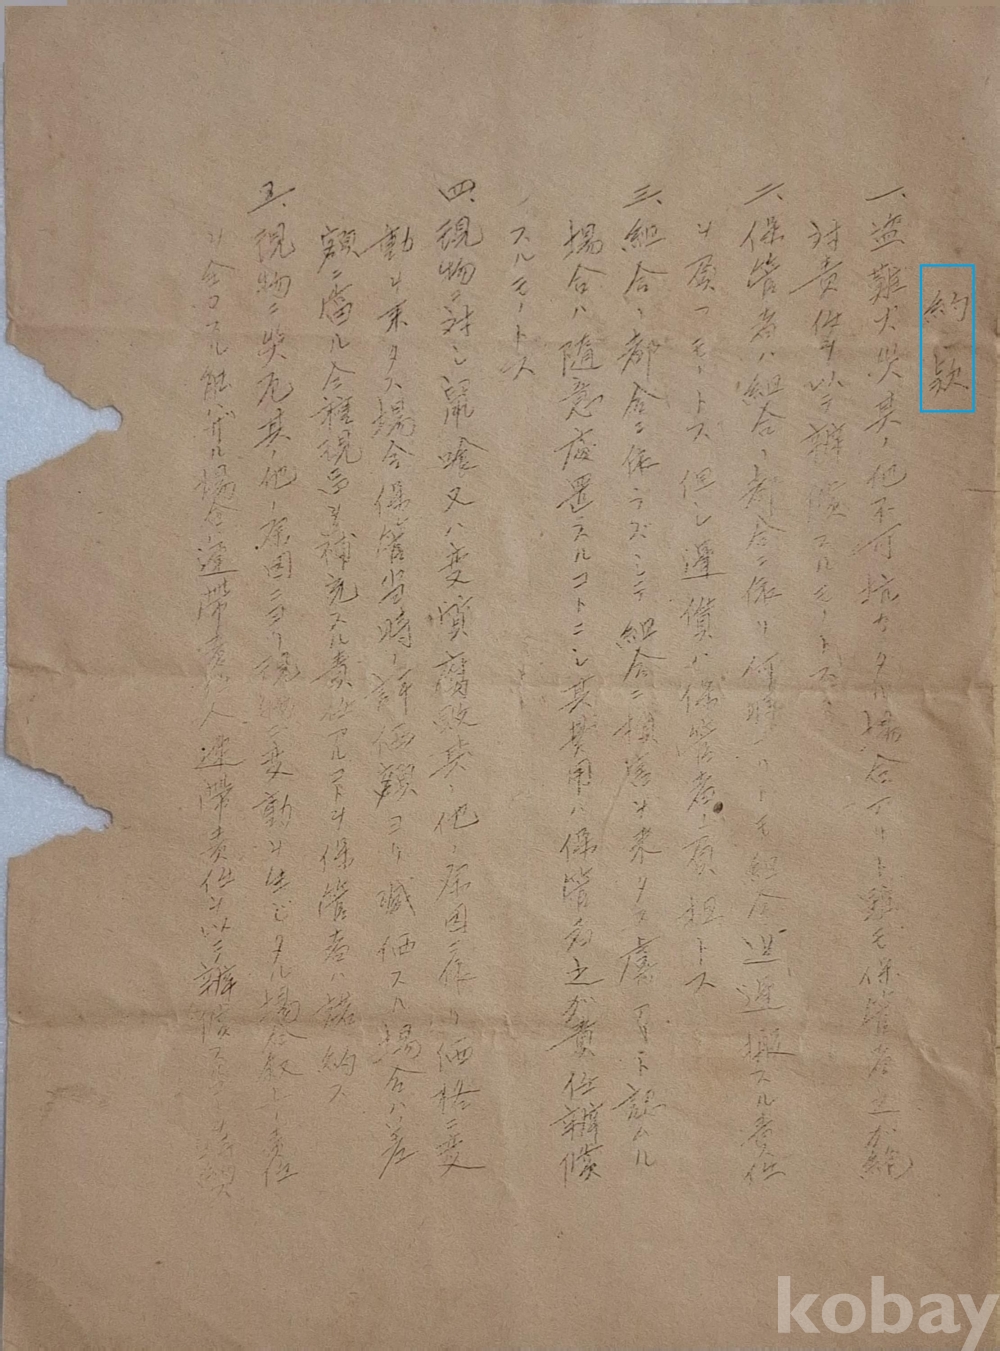 約款
一、盗難火災其ノ他不可抗力タル場合アリト雖モ保管者之ガ絶
対責任ヲ以テ辨償スルモノトス
二、保管者ハ組合ノ都合ニ依リ何時ナリトモ組合迄運搬スル責任
ヲ負フモノトス 但シ運賃ハ保管者ノ負担トス
三、組合ノ都合ニ依ラズシテ組合ニ損害ヲ来タス虞アリト認ムル
場合ハ随意処置スルコトニシ其費用ハ保管者之ガ責任辨償
スルモノトス
四、現物ニ対シ鼠喰又ハ変質腐敗其ノ他ノ原因ニ依リ価格ニ変
動ヲ来タス場合保管当時ノ評価額ヨリ減価スル場合ハ差
額ニ當ル仝種現品ヲ補充スル責任アルコトヲ保管者ハ諾約ス
五、現物ニ災厄其ノ他ノ原因ニヨリ現物ニ変動ヲ生ジタル場合叙上ノ責任
場合連帯責任人連帯責任ヲ以テ辨償
kobay